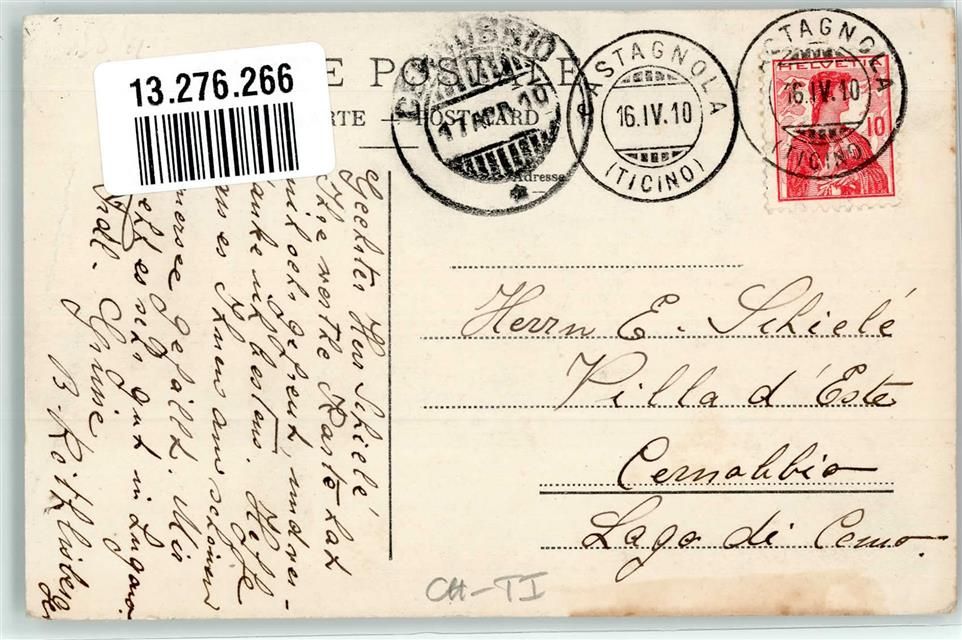 13.276.266
E POSTALE
RTE — POSTCARD
Adresse
CERNOBBIO
17 APR. 10
CASTAGNOLA
16.IV.10
(TICINO)
CASTAGNOLA
16.IV.10
(TICINO)
HELVETIA
10
Geehrter Herr Schielé
Ihre werthe Karte hat
mich sehr gefreut, und
danke ich bestens.
es Ihnen am schönen
gefällt. Mir
geht es sehr gut in Lugano.
Grüsse
B.
Herrn E. Schielé
Villa d'Este
Cernobbio
Lago di Como.
CH-TI